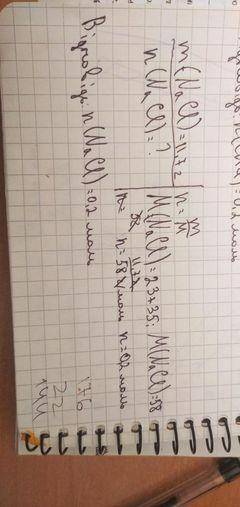 n(CH4) = 0,2 моль
m(NaCl) = 11,7 г
n(NaCl) = ?
n = m/M
M(NaCl) = 23+35; M(NaCl) = 58
n = 11,7г/58 г/моль n = 0,2 моль
Відповідь: n(NaCl) = 0,2 моль
176
22
144